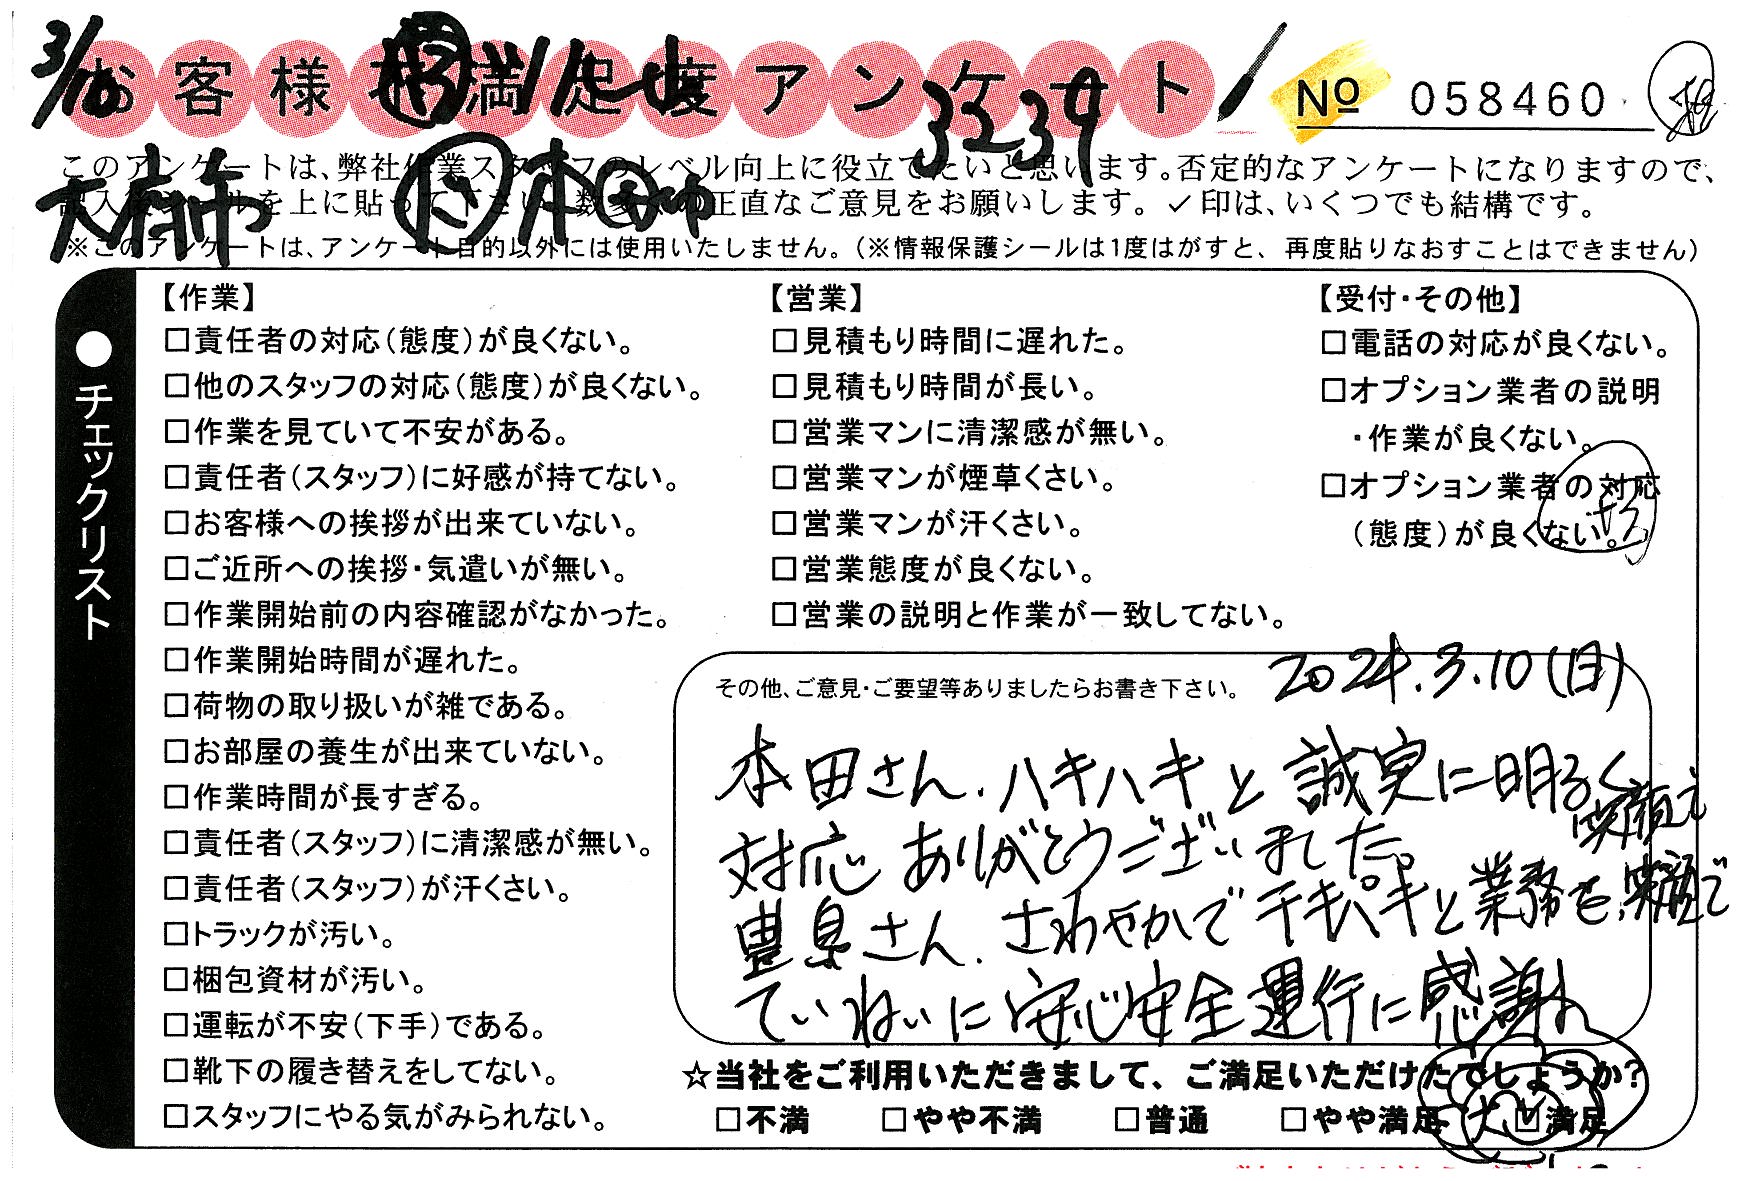 3/10
お客様 満足度アンケート
No 058460
3239
このアンケートは、弊社作業スタッフのレベル向上に役立てたいと思います。否定的なアンケートになりますので、
記入後シールを上に貼って下さい。数多くの正直なご意見をお願いします。✓印は、いくつでも結構です。
大府市 本田
※このアンケートは、アンケート目的以外には使用いたしません。(※情報保護シールは1度はがすと、再度貼りなおすことはできません)
●チェックリスト
【作業】
□責任者の対応(態度)が良くない。
□他のスタッフの対応(態度)が良くない。
□作業を見ていて不安がある。
□責任者(スタッフ)に好感が持てない。
□お客様への挨拶が出来ていない。
□ご近所への挨拶・気遣いが無い。
□作業開始前の内容確認がなかった。
□作業開始時間が遅れた。
□荷物の取り扱いが雑である。
□お部屋の養生が出来ていない。
□作業時間が長すぎる。
□責任者(スタッフ)に清潔感が無い。
□責任者(スタッフ)が汗くさい。
□トラックが汚い。
□梱包資材が汚い。
□運転が不安(下手)である。
□靴下の履き替えをしてない。
□スタッフにやる気がみられない。
【営業】
□見積もり時間に遅れた。
□見積もり時間が長い。
□営業マンに清潔感が無い。
□営業マンが煙草くさい。
□営業マンが汗くさい。
□営業態度が良くない。
□営業の説明と作業が一致してない。
【受付・その他】
□電話の対応が良くない。
□オプション業者の説明
・作業が良くない。
□オプション業者の対応
(態度)が良くない。
その他、ご意見・ご要望等ありましたらお書き下さい。
2024.3.10(日)
本田さん、ハキハキと誠実に明るく
笑顔も
対応 ありがとうございました。
豊島さん、さわやかでテキパキと業務を、笑顔で
ていねいに 安心安全運行に感謝
☆当社をご利用いただきまして、ご満足いただけたでしょうか?
□不満 □やや不満 □普通 □やや満足 大 ☑満足